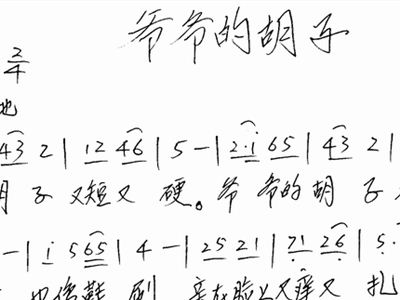 爷爷的胡子
2/4
地
43 2 | 12 46 | 5 - | 2·i 65 | 43 2 |
胡子又短又硬。爷爷的胡子
- | i 565 | 4 - | 25 21 | 71 26 | 5·
也像鞋刷 亲在脸上又痒又扎